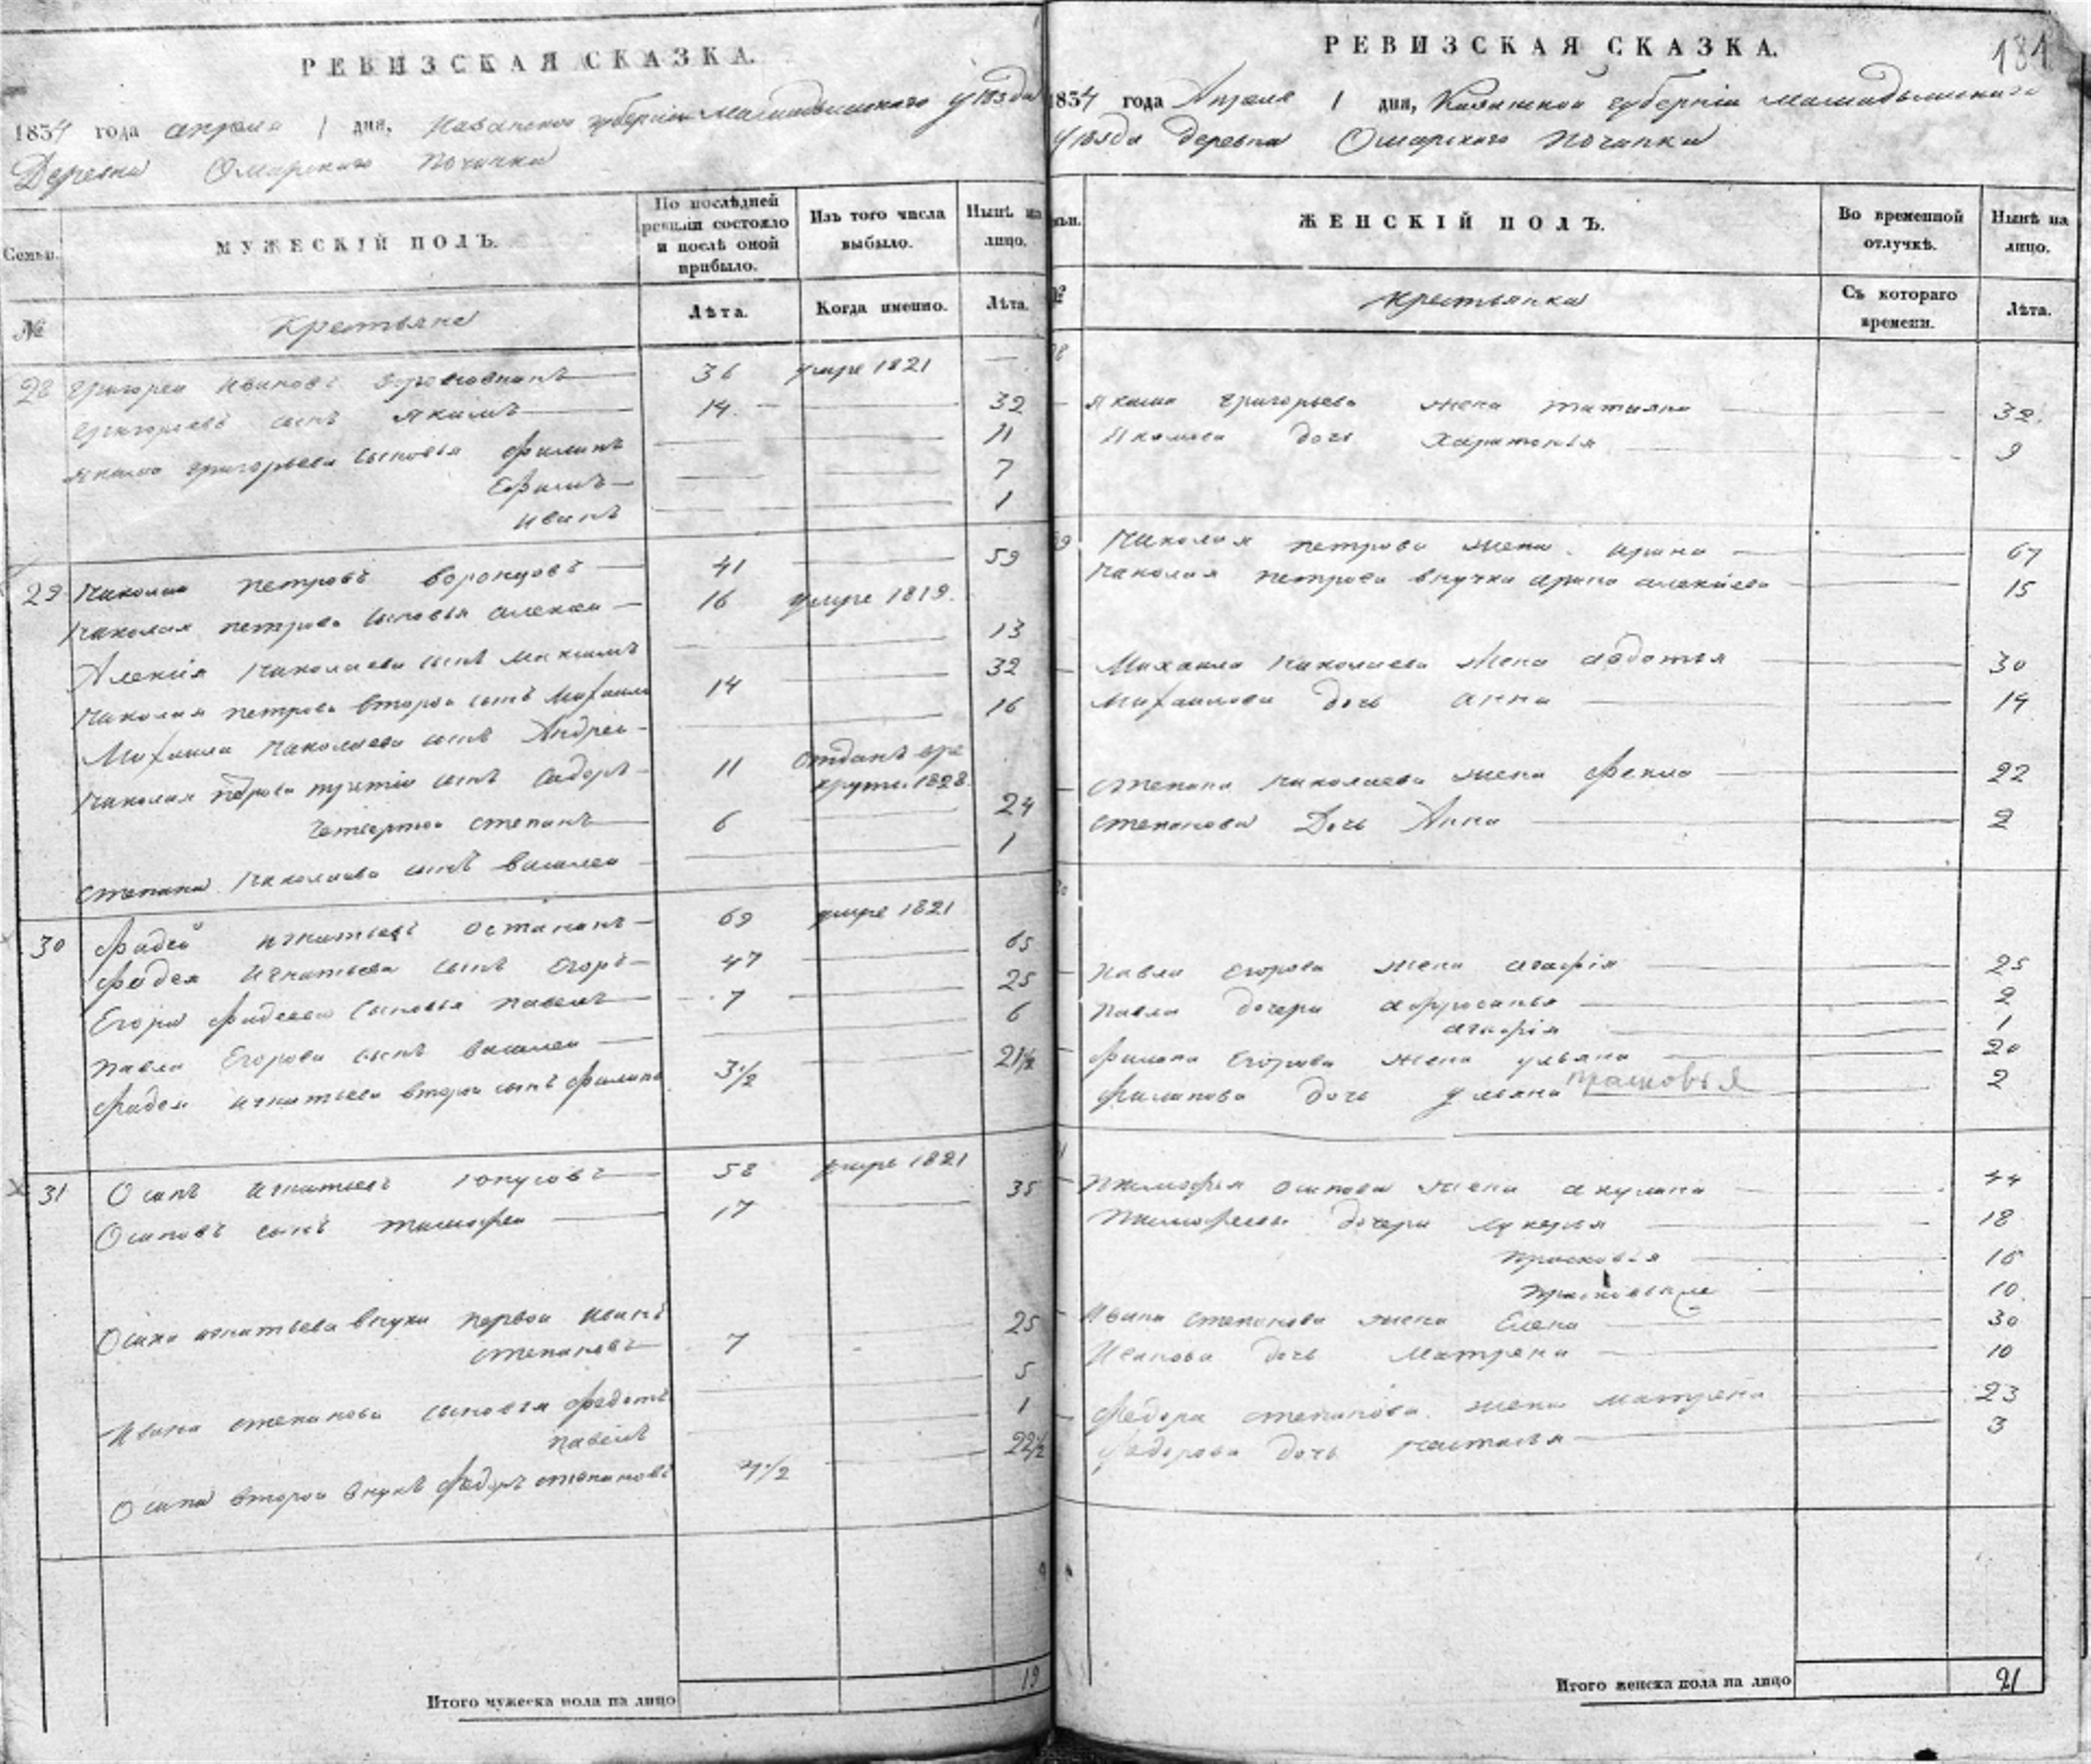 РЕВИЗСКАЯ СКАЗКА.
1834 года апреля 1 дня, Казанской губернии Мамадышского уѣзда
Деревни Омарского Починка
Семьи.
МУЖЕСКІЙ ПОЛЪ.
По послѣдней ревизіи состояло и послѣ оной прибыло.
Изъ того числа выбыло.
Нынѣ на лицо.
№
Крестьяне
Лѣта.
Когда именно.
Лѣта.
28 Григореи Ивановъ 36 умре 1821 —
Григорьевъ сынъ Якимъ 14 32
Якима Григорьева сыновья Филипъ 11
Ефимъ 7
Иванъ 1
29 Николаи Петровъ Воронцовъ 41 59
Николая Петрова сыновья Алексеи 16 умре 1819.
Алексія Николаева сынъ Максимъ 13
Николая Петрова второи сынъ Михаила 14 32
Михаила Николаева сынъ Андреи 16
Николая Петрова третіи сынъ Сидоръ 11 отданъ в рекруты 1828.
Четвертои Степанъ 6 24
Степана Николаева сынъ Василеи 1
30 Фадей Игнатьевъ Останинъ 69 умре 1821
Фадея Игнатьева сынъ Егоръ 47 65
Егора Фадеева сыновья Павелъ 7 25
Павла Егорова сынъ Василеи 6
Фадея Игнатьева второи сынъ Филипъ 3 1/2 21 1/2
31 Осипъ Игнатьевъ Юнусовъ 58 умре 1821
Осиповъ сынъ Тимофеи 17 35
Осипа Игнатьева внуки первои Иванъ
Степановъ 7 25
Ивана Степанова сыновья Федотъ 5
Павелъ 1
Осипа второи внукъ Федоръ Степановъ 4 1/2 22 1/2
Итого мужеска пола на лицо 19
181
РЕВИЗСКАЯ СКАЗКА.
1834 года Апреля 1 дня, Казанской губерніи Мамадышскаго
уѣзда деревни Омарского Починка
ЖЕНСКІЙ ПОЛЪ.
Во временной отлучкѣ.
Нынѣ на лицо.
Крестьянки
Съ котораго времени.
Лѣта.
Якима Григорьева жена Татьяна 32.
Якимова дочь Харитонья 9
Николая Петрова жена Ирина 67
Николая Петрова внучка Ирина Алексіева 15
Михаила Николаева жена Авдотья 30
Михаилова дочь Анна 14
Степана Николаева жена Фекла 22
Степанова Дочь Анна 2
Павла Егорова жена Агафія 25
Павла дочери Афросинья 2
Агафія 1
Филипа Егорова жена Ульяна 20
Филипова дочь Ульяна Прасковья 2
Тимофея Осипова жена Акулина 44
Тимофеевы дочери Лукерья 18
Прасковья 16
10.
Ивана Степанова жена Елена 30
Иванова дочь Матрена 10
Федора Степанова жена Матрена 23
Федорова дочь Настасья 3
Итого женска пола на лицо 21